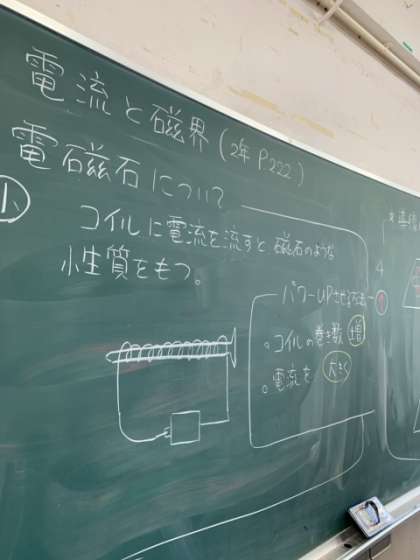 電流と磁界(2年 P.222)
電磁石について
小
コイルに電流を流すと、磁石のような
性質をもつ。
パワーUPさせる方法
。コイルの巻き数 増
。電流を 大きく
4